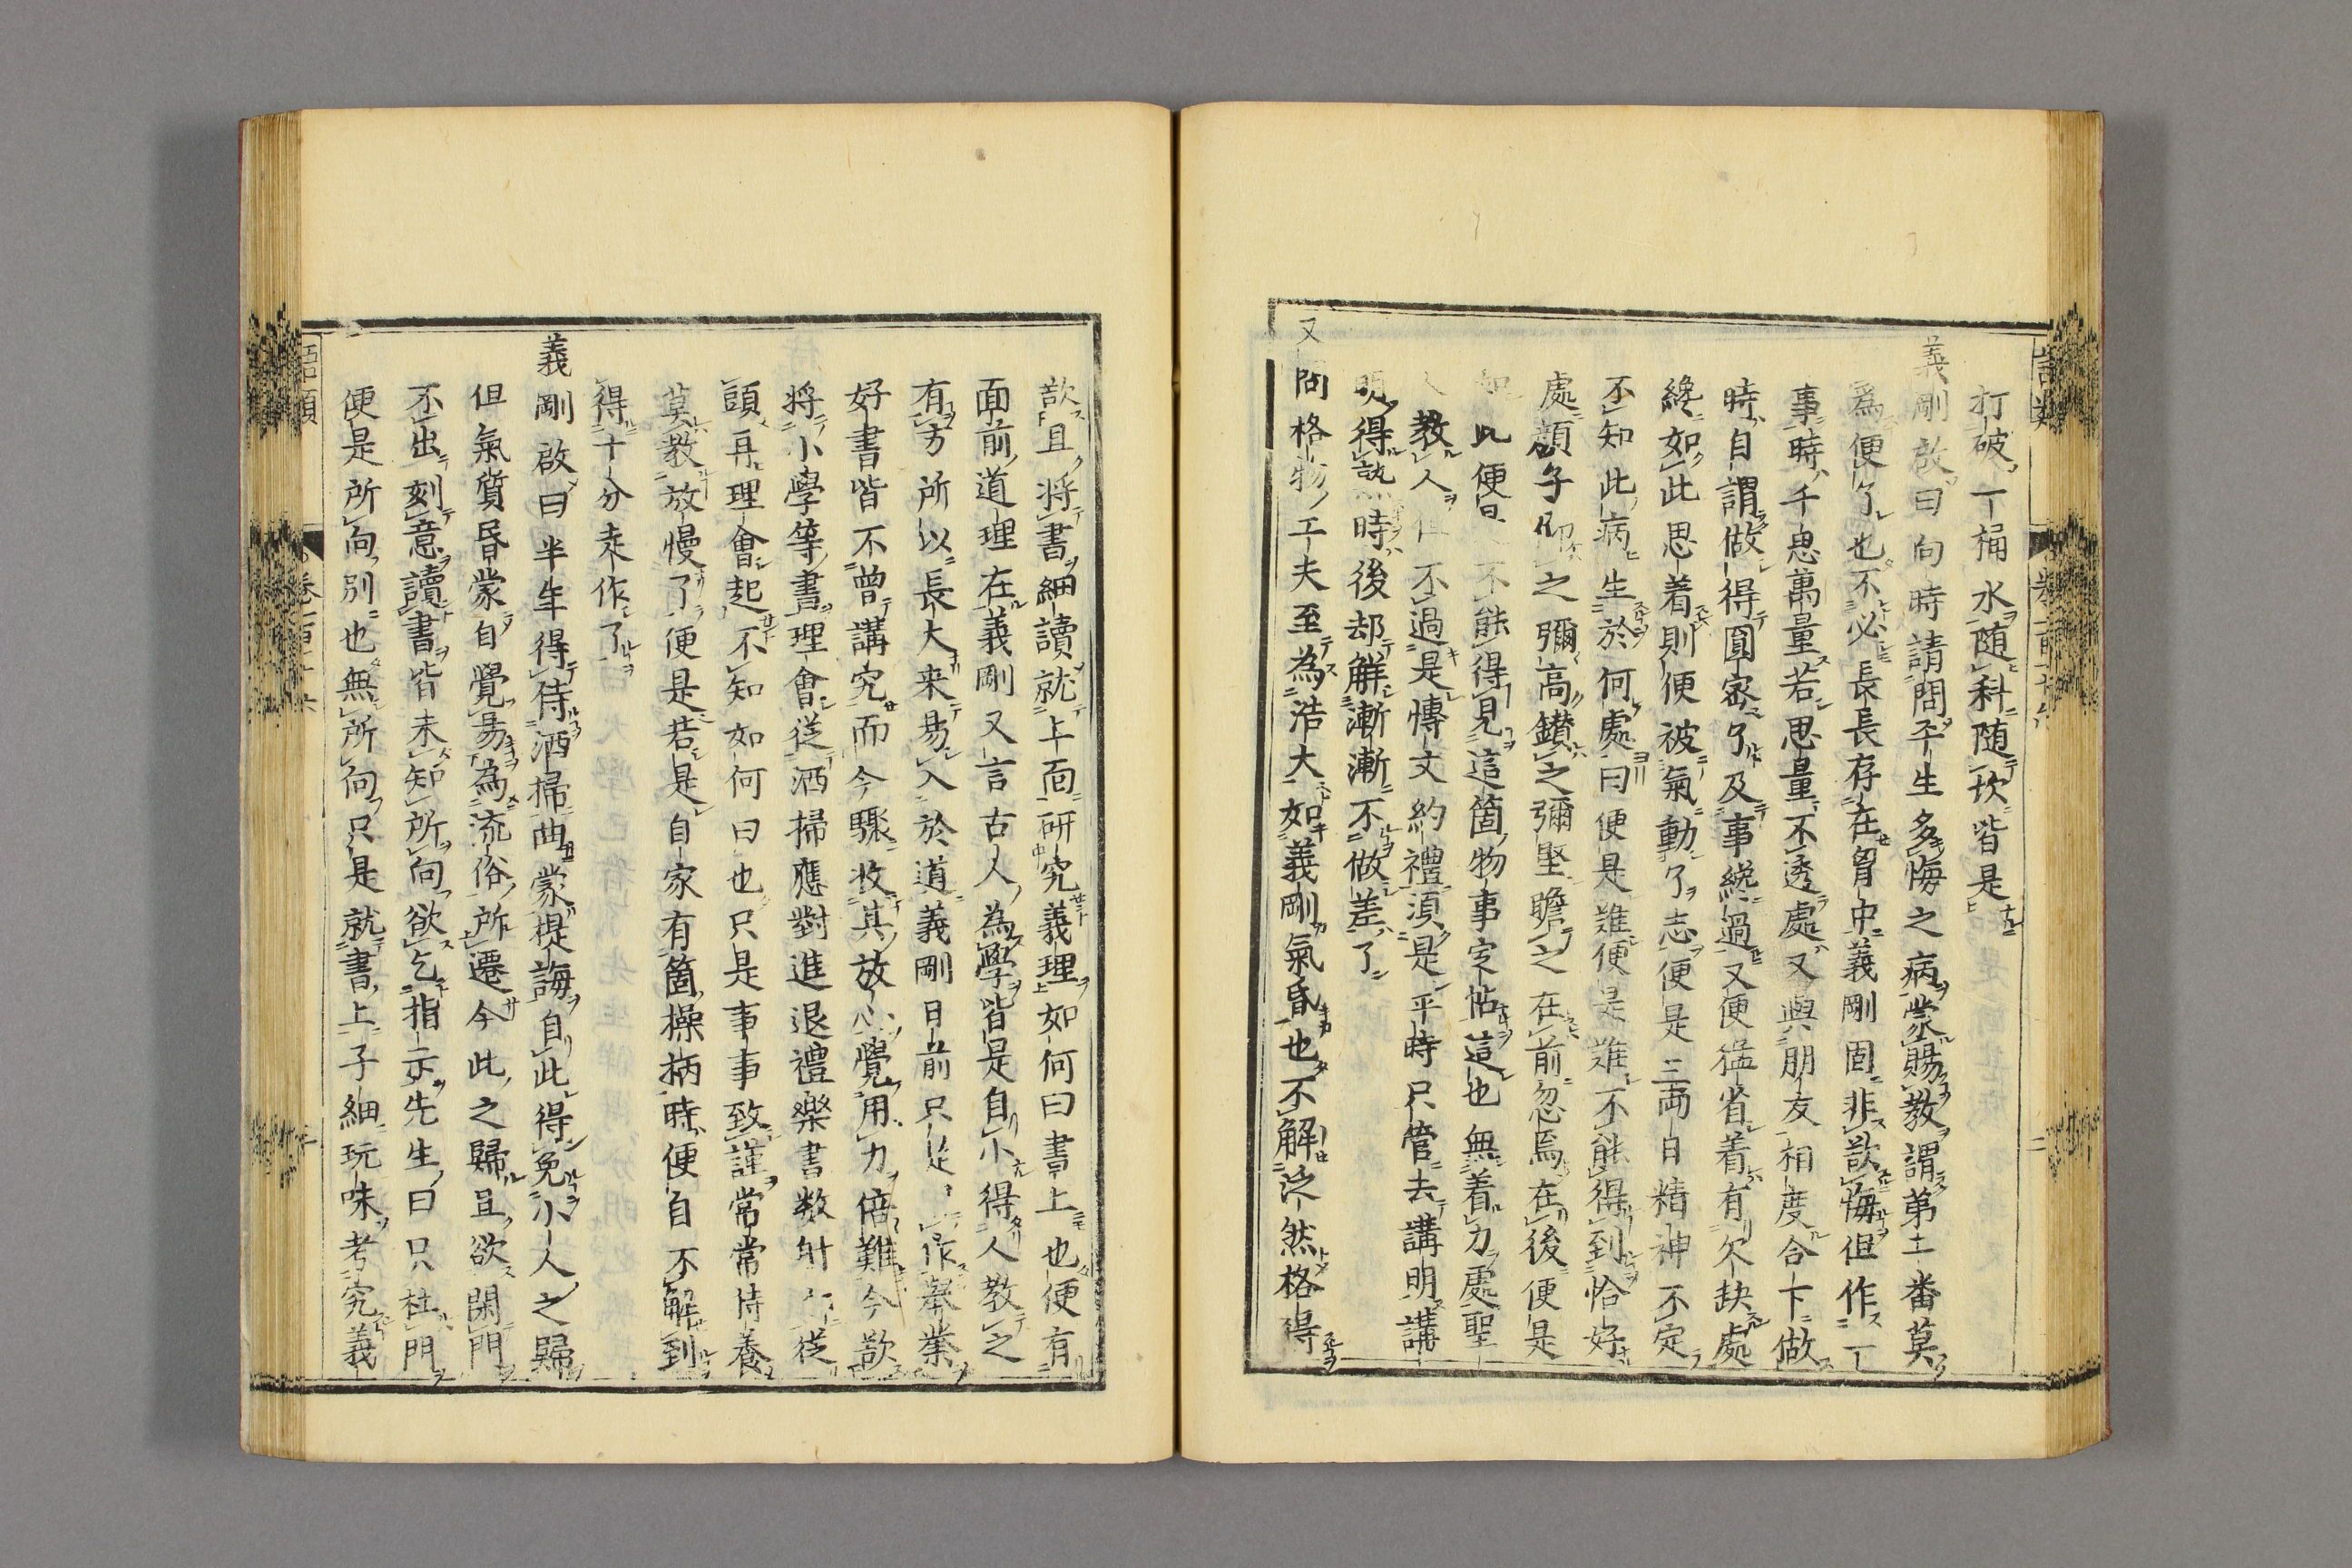 打破一桶水隨科隨坎皆是
義剛啟曰向時請問平生多悔之病蒙賜教謂第二番莫
為便了也不必長長存在胷中義剛固非欲悔但作一
事時千思萬量若思量不透處又與朋友相度合下做
時自謂做得圓密了及事纔過又便猛省着有欠缺處
纔如此思着則便被氣動了志便是三兩日精神不定
不知此病生於何處曰便是難便是難不能得到恰好
處顔子仰之彌高鑚之彌堅瞻之在前忽焉在後便是
如此便是不能得見這箇物事定帖這也無着力處聖
人教人但不過是博文約禮須是平時只管去講明講
明得熟時後却觧漸漸不做差了
又問格物工夫至為浩大如義剛氣昏也不解泛然格得
欲且將書細讀就上面研究義理如何曰書上也便有
面前道理在義剛又言古人為學皆是自小得人教之
有方所以長大来易入於道義剛目前只是作舉業
好書皆不曾講究而今驟收其放心覺用力倍難今欲
將小學等書理會從洒掃應對進退禮樂書数射御從
頭再理會起不知如何曰也只是事事致謹常常持養
莫教放慢了便是若是自家有箇操柄時便自不解到
得十分走作了
義剛啟曰半年得侍洒掃曲蒙提誨自此得免小人之歸
但氣質昏蒙自覺易為流俗所遷今此之歸且欲閑門
不出刻意讀書皆未知所向欲乞指示先生曰只杜門
便是所向別也無所向只是就書上子細玩味考究義
語類
卷一百十六